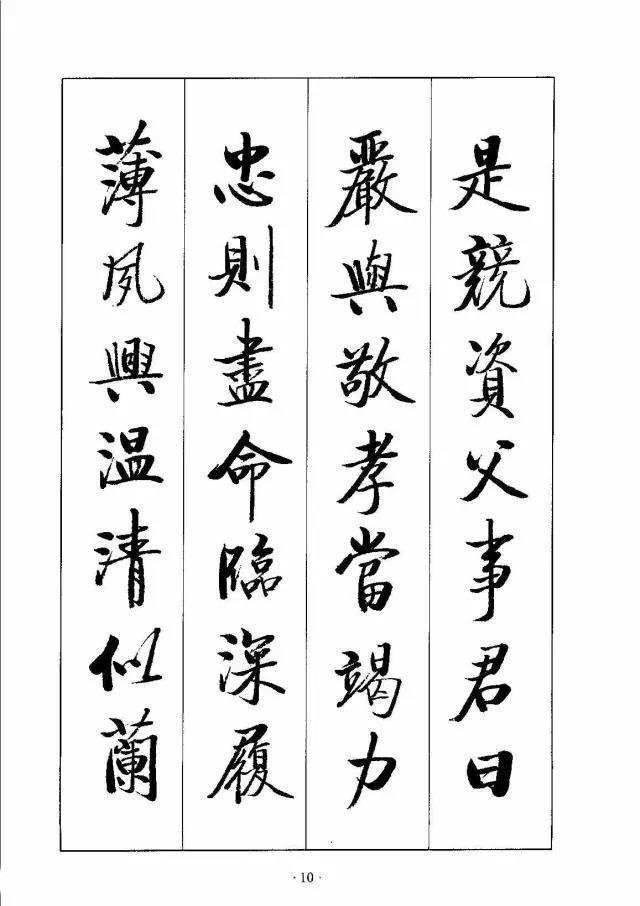 是競資父事君曰
嚴與敬孝當竭力
忠則盡命臨深履
薄夙興温清似蘭
·10·